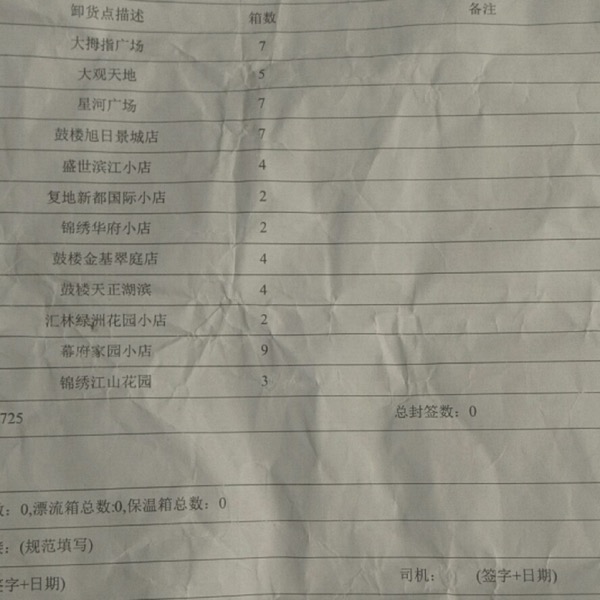 卸货点描述 箱数 备注
大拇指广场 7
大观天地 5
星河广场 7
鼓楼旭日景城店 7
盛世滨江小店 4
复地新都国际小店 2
锦绣华府小店 2
鼓楼金基翠庭店 4
鼓楼天正湖滨 4
汇林绿洲花园小店 2
幕府家园小店 9
锦绣江山花园 3
725 总封签数：0
：0,漂流箱总数:0,保温箱总数：0
：(规范填写)
字+日期) 司机： (签字+日期)